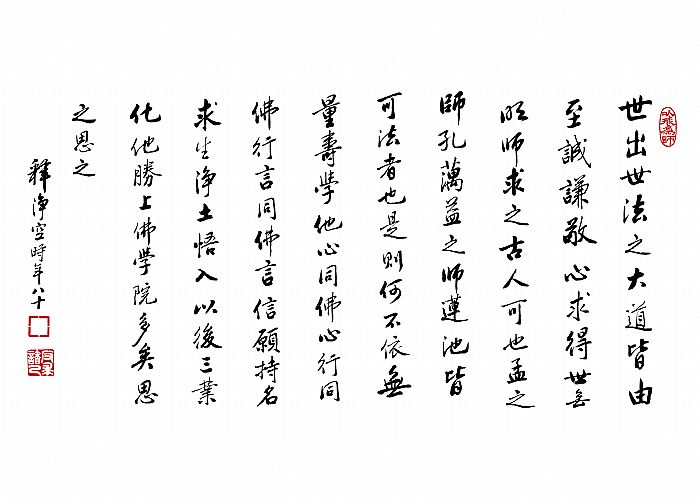 世出世法之大道皆由
至誠謙敬心求得世無
明師求之古人可也孟之
師孔蕅益之師蓮池皆
可法者也是則何不依無
量壽學他心同佛心行同
佛行言同佛言信願持名
求生淨土悟入以後三業
化他勝上佛學院多矣思
之思之
釋淨空時年八十